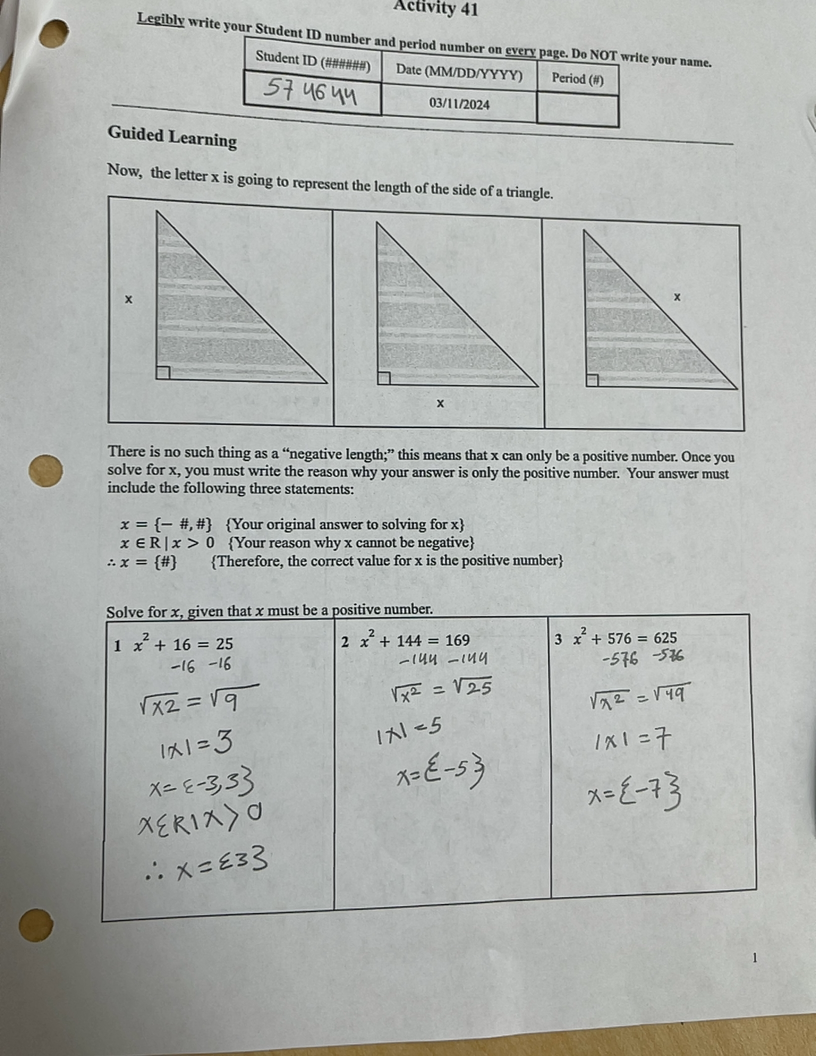 Activity 41
Legibly write your Student ID number and period number on every page. Do NOT write your name.
Student ID (######) Date (MM/DD/YYYY) Period (#)
574644 03/11/2024
Guided Learning
Now, the letter x is going to represent the length of the side of a triangle.
x
x
x
There is no such thing as a “negative length;” this means that x can only be a positive number. Once you
solve for x, you must write the reason why your answer is only the positive number. Your answer must
include the following three statements:
x = {− #, #} {Your original answer to solving for x}
x ∈ R | x > 0 {Your reason why x cannot be negative}
∴ x = {#} {Therefore, the correct value for x is the positive number}
Solve for x, given that x must be a positive number.
1 x² + 16 = 25
-16 -16
√x2 = √9
|x| = 3
x = {-3,3}
x ∈ R | x > 0
∴ x = {3}
2 x² + 144 = 169
-144 -144
√x² = √25
|x| = 5
x = {-5}
3 x² + 576 = 625
-576 -576
√x² = √49
|x| = 7
x = {-7}
1